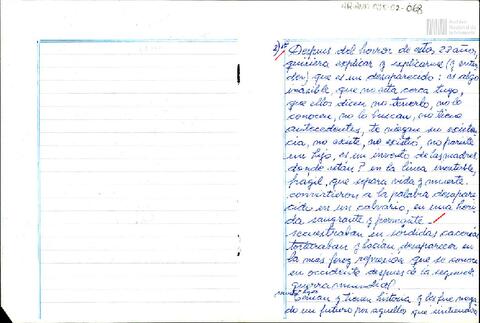 AR-ANM-
-02-068
Archivo
Nacional de
la Memoria
2)
Despues del horror de estos 23 años,
quisiera explicar y explicarme (y enten
der) que es un desaparecido: es algo
invisible, que no esta cerca tuyo,
que ellos dicen no tenerlo, no lo
conocen, no lo buscan, no tiene
antecedentes, te niegan su existen
cia, no existe, no existió, no pariste
un hijo, es un invento de las madres
donde están? en la linea invisible,
fragil, que separa vida y muerte.
convirtieron a la palabra desapare
cido en un calvario, en una heri
da sangrante y
secuestraban en sordidas cacerias
torturaban y hacian desaparecer en
la mas feroz represion que se conoce
en occidente despues de la segunda
guerra mundial.
tenian y tienen historia, y les fue nega
do un futuro por aquellos que